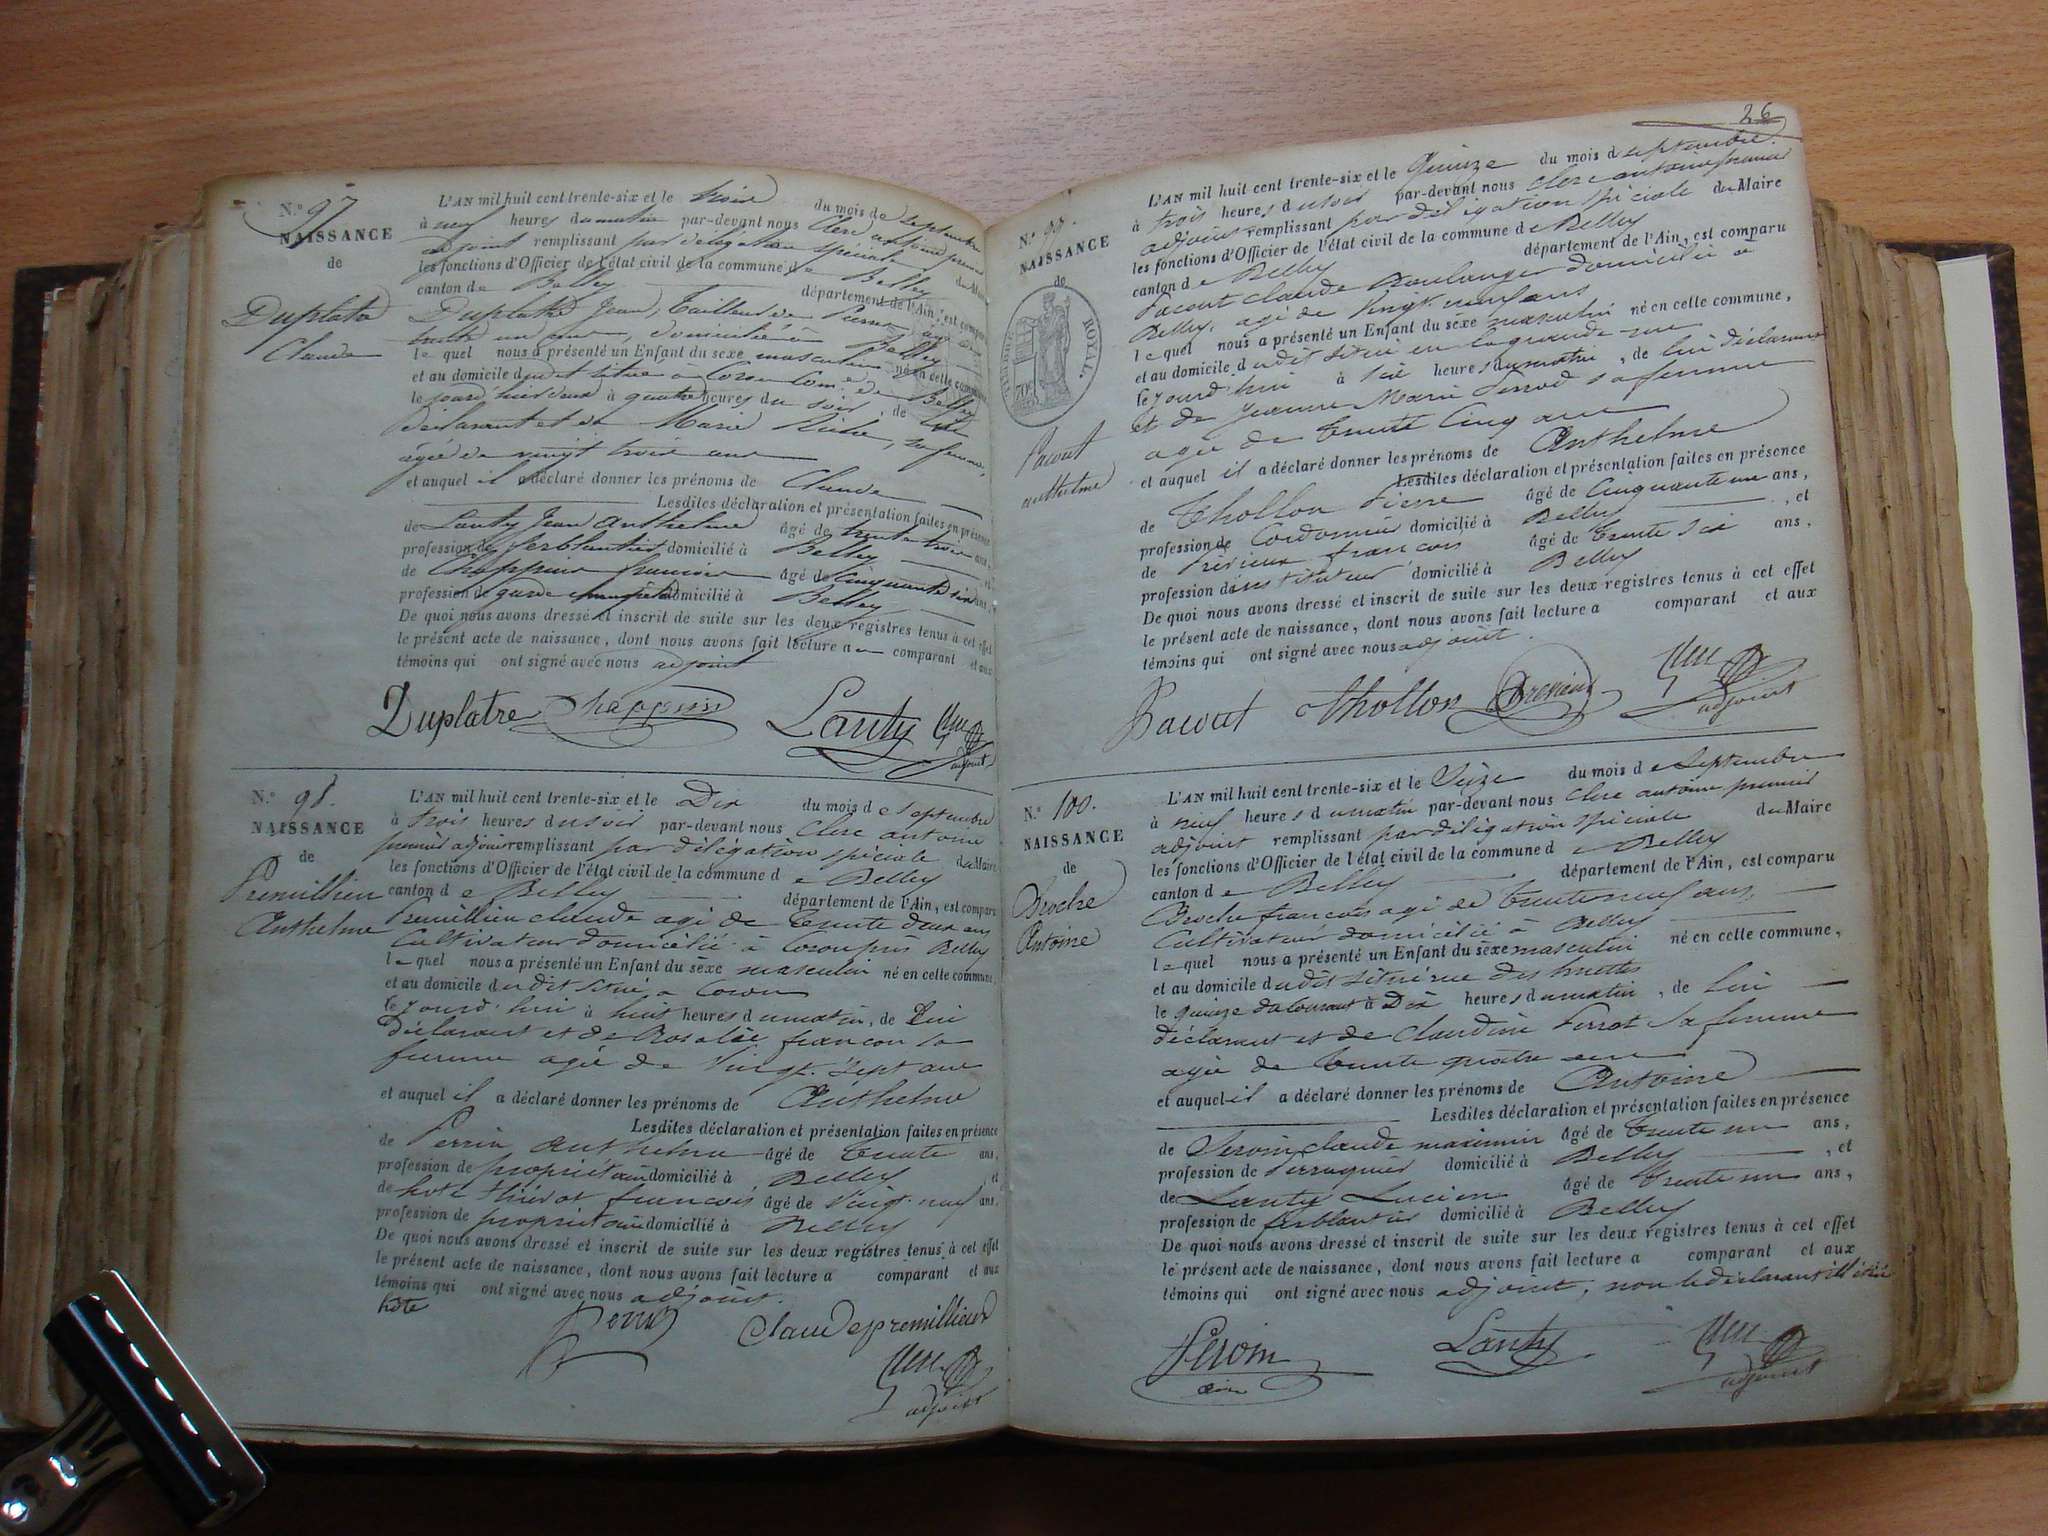 N.º 97
NAISSANCE
de
Duplatre
Claude
L'AN mil huit cent trente-six et le trois du mois de septembre
à neuf heures du matin par-devant nous Clerc antoine premier
adjoint remplissant par délégation spéciale du Maire
les fonctions d'Officier de l'état civil de la commune de Belley
canton de Belley département de l'Ain, est comparu
Duplatre Jean, tailleur de Pierre, âgé de
trente un ans, domicilié à Belley
lequel nous a présenté un Enfant du sexe masculin né en cette commune
et au domicile dudit situé à Coron Com.e de Belley
le jourd'hier deux à quatre heures du soir, de lui
Déclarant et de Marie sa femme,
agée de vingt trois ans
et auquel il a déclaré donner les prénoms de Claude
Lesdites déclaration et présentation faites en présence
de Lanty Jean anthelme âgé de trente trois ans,
profession de ferblantier domicilié à Belley, et
de Chappuis francois âgé de Cinquante six ans,
profession de garde champêtre domicilié à Belley
De quoi nous avons dressé et inscrit de suite sur les deux registres tenus à cet effet
le présent acte de naissance, dont nous avons fait lecture au comparant et aux
témoins qui ont signé avec nous adjoint
Duplatre Chappuis Lanty Clerc
adjoint
N.º 98.
NAISSANCE
de
Premillieu
Anthelme
L'AN mil huit cent trente-six et le Dix du mois de septembre
à trois heures du soir par-devant nous Clerc antoine
premier adjoint remplissant par délégation spéciale du Maire
les fonctions d'Officier de l'état civil de la commune de Belley
canton de Belley département de l'Ain, est comparu
Premillieu claude agé de trente deux ans
Cultivateur domicilié à Coron près Belley
lequel nous a présenté un Enfant du sexe masculin né en cette commune,
et au domicile dudit situé a Coron
lejourd'hui à huit heures du matin, de Lui
déclarant et de Rosalie francon sa
femme agée de Vingt-sept ans
et auquel il a déclaré donner les prénoms de Anthelme
Lesdites déclaration et présentation faites en présence
de Perrin anthelme âgé de trente ans,
profession de propriétaire domicilié à Belley, et
de hote francois âgé de Vingt neuf ans,
profession de propriétaire domicilié à Belley
De quoi nous avons dressé et inscrit de suite sur les deux registres tenus à cet effet
le présent acte de naissance, dont nous avons fait lecture a comparant et aux
témoins qui ont signé avec nous adjoint.
hote
Perrin Claude premillieu
Clerc
adjoint
26
N.º 99.
NAISSANCE
de
ROYAL.
Pacout
anthelme
L'AN mil huit cent trente-six et le Quinze du mois de septembre
à trois heures du soir par-devant nous Clerc antoine premier
adjoint remplissant par délégation spéciale du Maire
les fonctions d'Officier de l'état civil de la commune de Belley
canton de Belley département de l'Ain, est comparu
Pacout Claude Boulanger domicilié à
Belley, agé de vingt neuf ans
lequel nous a présenté un Enfant du sexe masculin né en cette commune,
et au domicile dudit situé en la grande rue
lejourd'hui à six heures du matin, de lui déclarant
et de Jeanne Marie sa femme
agée de trente Cinq ans
et auquel il a déclaré donner les prénoms de Anthelme
Lesdites déclaration et présentation faites en présence
de Thollon Pierre âgé de Cinquante un ans,
profession de Cordonnier domicilié à Belley, et
de francois âgé de trente six ans,
profession d'instituteur domicilié à Belley
De quoi nous avons dressé et inscrit de suite sur les deux registres tenus à cet effet
le présent acte de naissance, dont nous avons fait lecture a comparant et aux
témoins qui ont signé avec nous adjoint.
Pacout thollon Clerc
adjoint
N.º 100.
NAISSANCE
de
Broche
Antoine
L'AN mil huit cent trente-six et le Seize du mois de Septembre
à neuf heures du matin par-devant nous Clerc antoine premier
adjoint remplissant par délégation spéciale du Maire
les fonctions d'Officier de l'état civil de la commune de Belley
canton de Belley département de l'Ain, est comparu
Broche francois agé de trente neuf ans,
Cultivateur domicilié à Belley
lequel nous a présenté un Enfant du sexe masculin né en cette commune,
et au domicile dudit situé rue des
le quinze du courant à Dix heures du matin, de Lui
déclarant et de Claudine Ferrot sa femme
agée de trente quatre ans
et auquel il a déclaré donner les prénoms de Antoine
Lesdites déclaration et présentation faites en présence
de claude maximin âgé de trente un ans,
profession de Perruquier domicilié à Belley, et
de Lanty Lucien âgé de trente un ans,
profession de ferblantier domicilié à Belley
De quoi nous avons dressé et inscrit de suite sur les deux registres tenus à cet effet
le présent acte de naissance, dont nous avons fait lecture a comparant et aux
témoins qui ont signé avec nous adjoint, non le déclarant
Lanty Clerc
adjoint